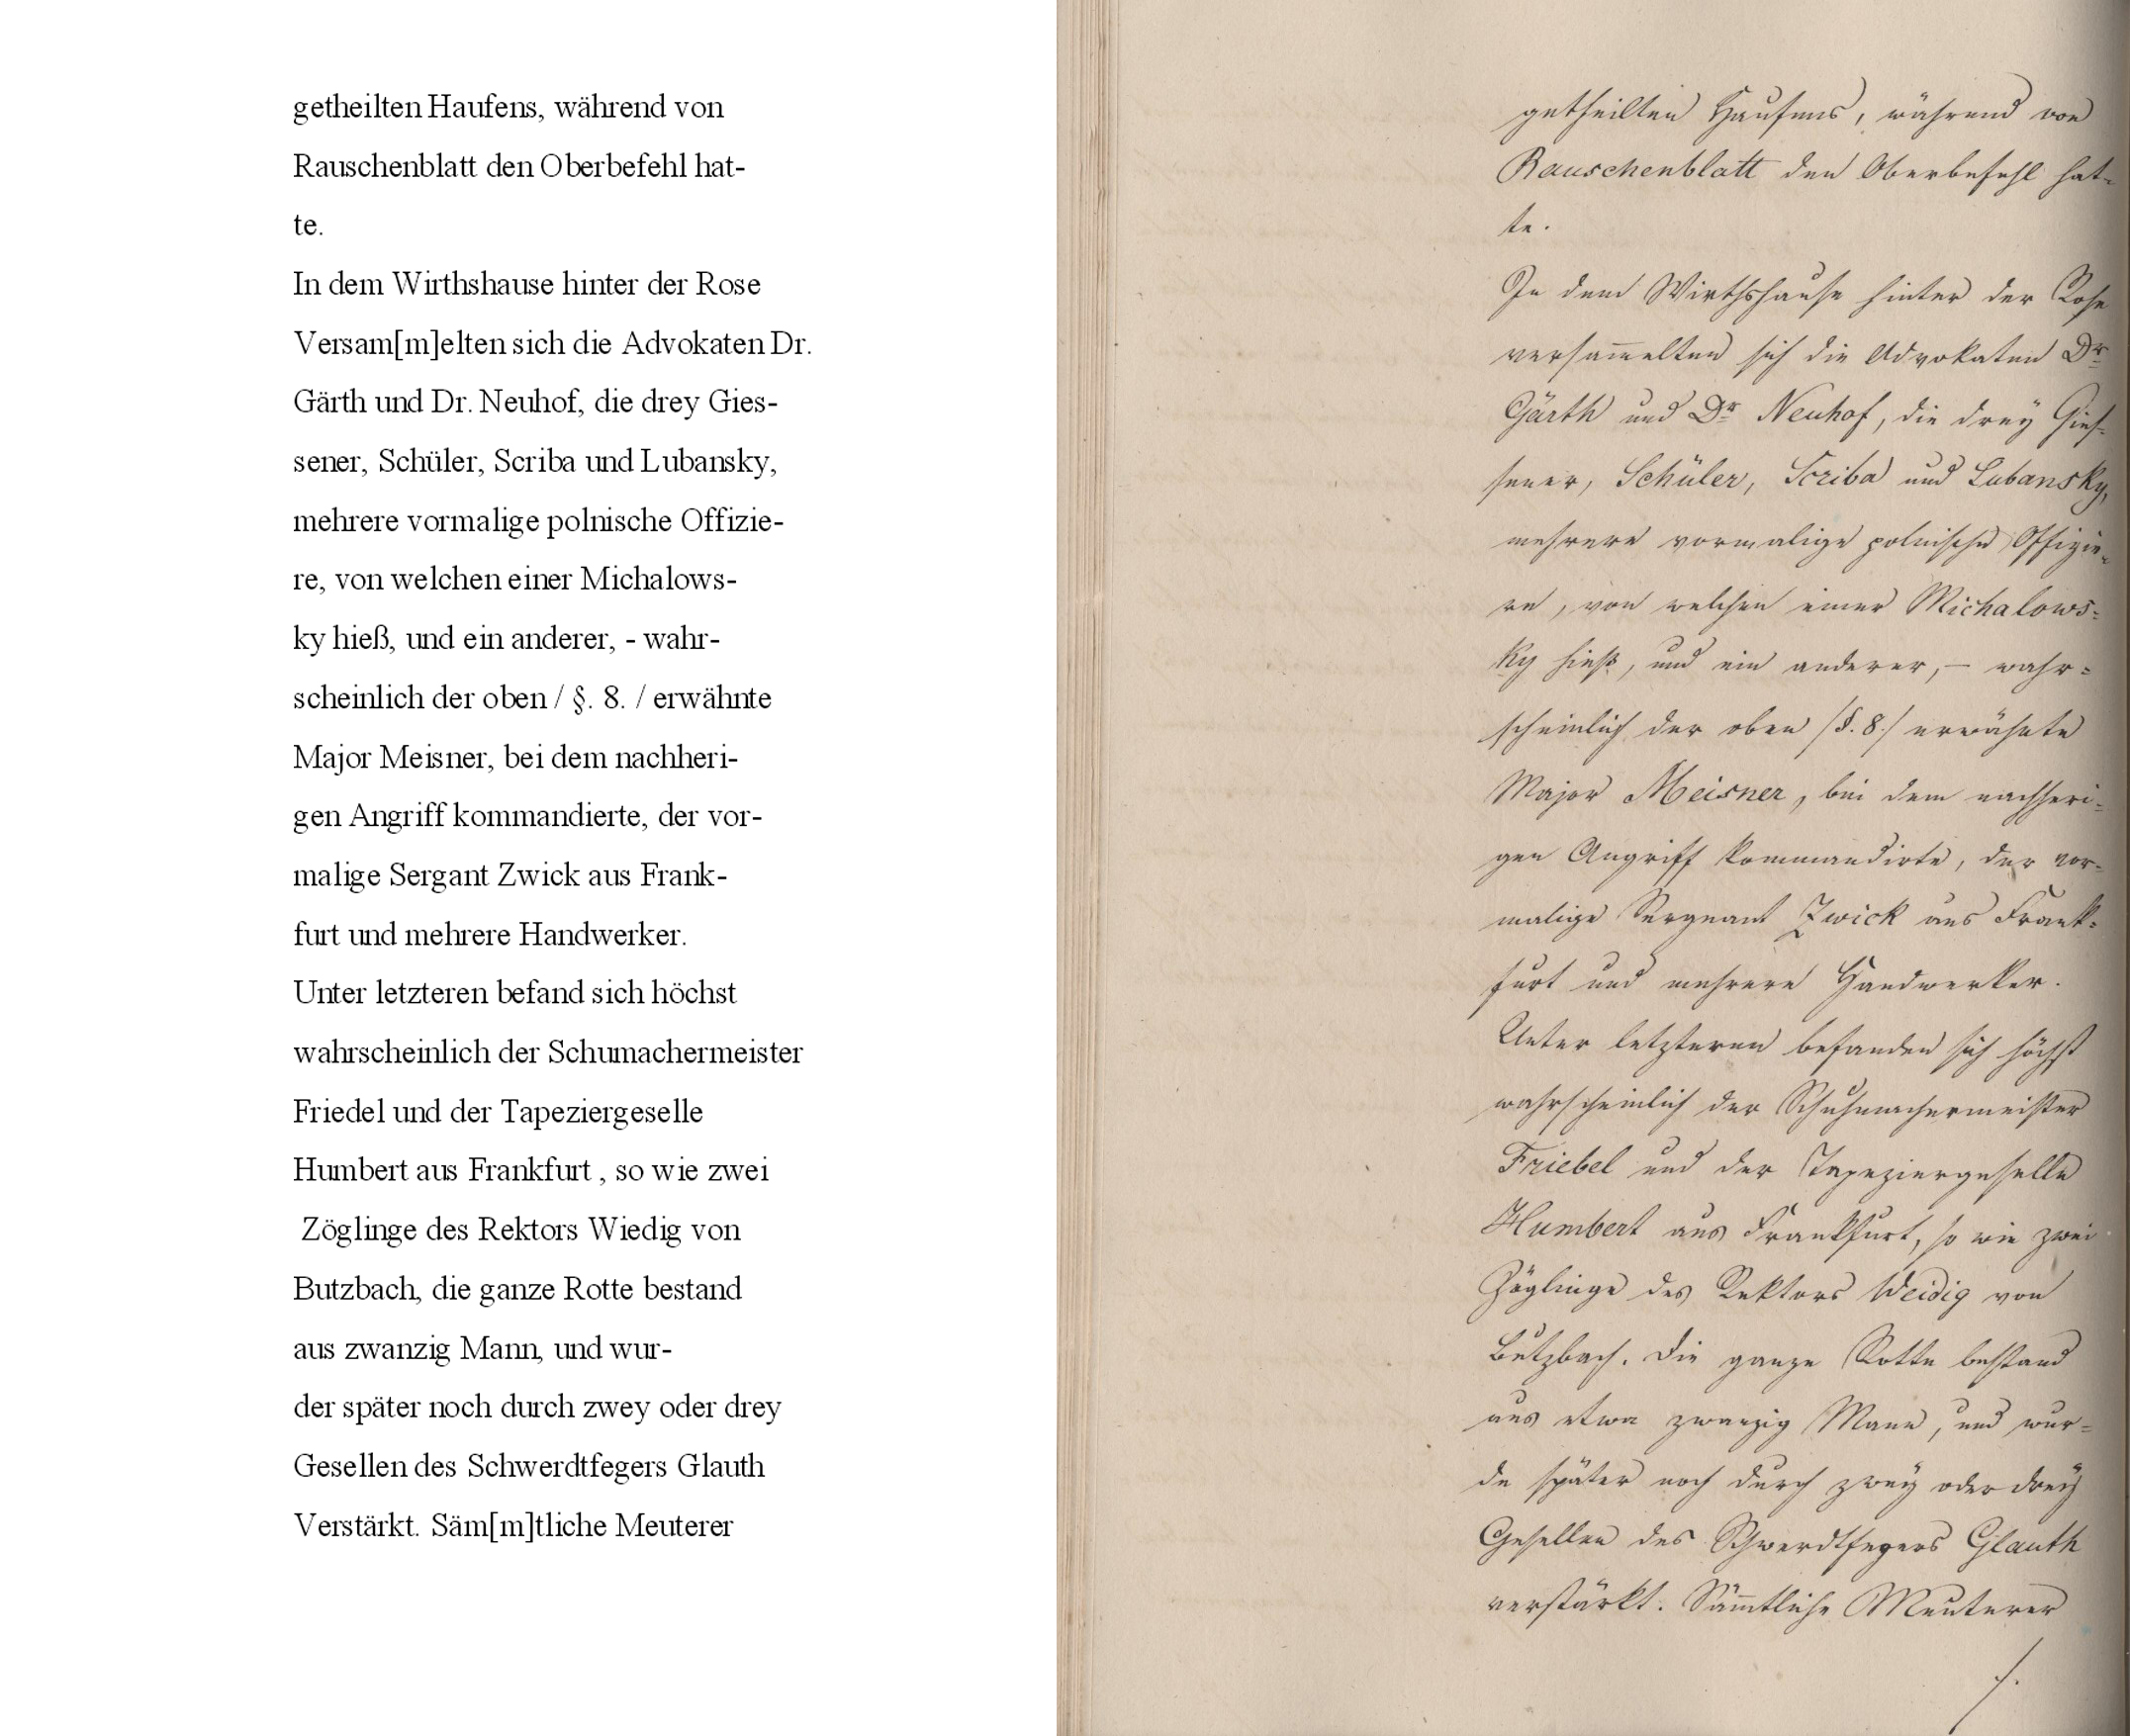 getheilten Haufens, während von
Rauschenblatt den Oberbefehl hat-
te.
In dem Wirthshause hinter der Rose
Versam[m]elten sich die Advokaten Dr.
Gärth und Dr. Neuhof, die drey Gies-
sener, Schüler, Scriba und Lubansky,
mehrere vormalige polnische Offizie-
re, von welchen einer Michalows-
ky hieß, und ein anderer, - wahr-
scheinlich der oben / §. 8. / erwähnte
Major Meisner, bei dem nachheri-
gen Angriff kommandierte, der vor-
malige Sergant Zwick aus Frank-
furt und mehrere Handwerker.
Unter letzteren befand sich höchst
wahrscheinlich der Schumachermeister
Friedel und der Tapeziergeselle
Humbert aus Frankfurt , so wie zwei
Zöglinge des Rektors Wiedig von
Butzbach, die ganze Rotte bestand
aus zwanzig Mann, und wur-
der später noch durch zwey oder drey
Gesellen des Schwerdtfegers Glauth
Verstärkt. Säm[m]tliche Meuterer
getheilten Haufens, während von
Rauschenblatt den Oberbefehl hat-
te.
In dem Wirthshause hinter der Rose
versam̅elten sich die Advokaten Dr
Gärth und Dr Neuhof, die drey Gies-
sener, Schüler, Scriba und Lubansky,
mehrere vormalige polnische Offizie-
re, von welchen einer Michalows=
ky hieß, und ein anderer, – wahr=
scheinlich der oben /§. 8./ erwähnte
Major Meisner, bei dem nachheri=
gen Angriff kommandirte, der vor=
malige Sergeant Zwick aus Frank=
furt und mehrere Handwerker.
Unter letzteren befanden sich höchst
wahrscheinlich der Schuhmachermeister
Friebel und der Tapeziergeselle
Humbert aus Frankfurt, so wie zwei
Zöglinge des Rektors Weidig von
Butzbach. Die ganze Rotte bestand
aus etwa zwanzig Mann, und wur=
de später noch durch zwey oder drey
Gesellen des Schwerdtfegers Glauth
verstärkt. Säm̅tliche Meuterer